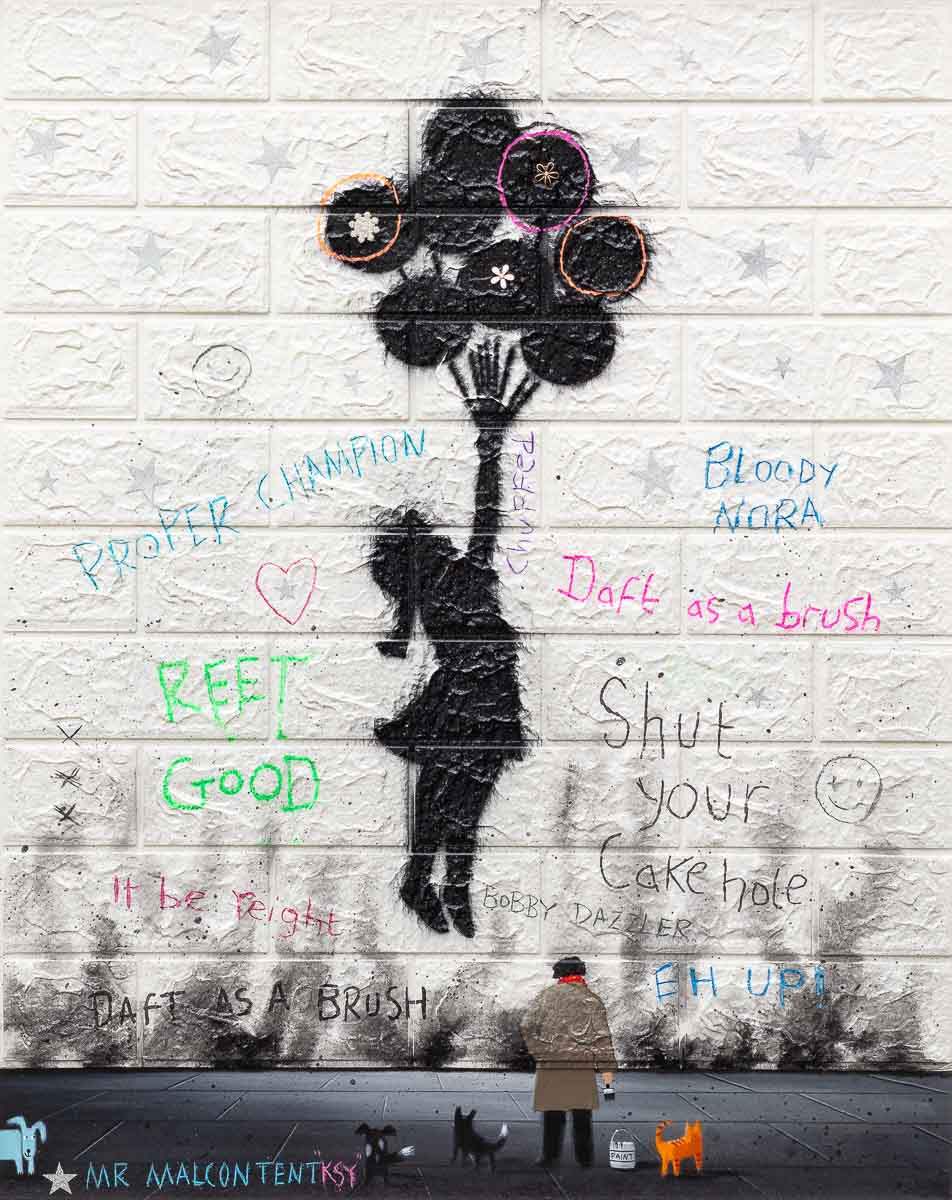 PROPER CHAMPION
Chuffed
BLOODY
NORA
Daft as a brush
REET
GOOD
Shut
your
Cake hole
It be reight
BOBBY DAZZLER
DAFT AS A BRUSH
EH UP!
PAINT
MR MALCONTENT"KSY"